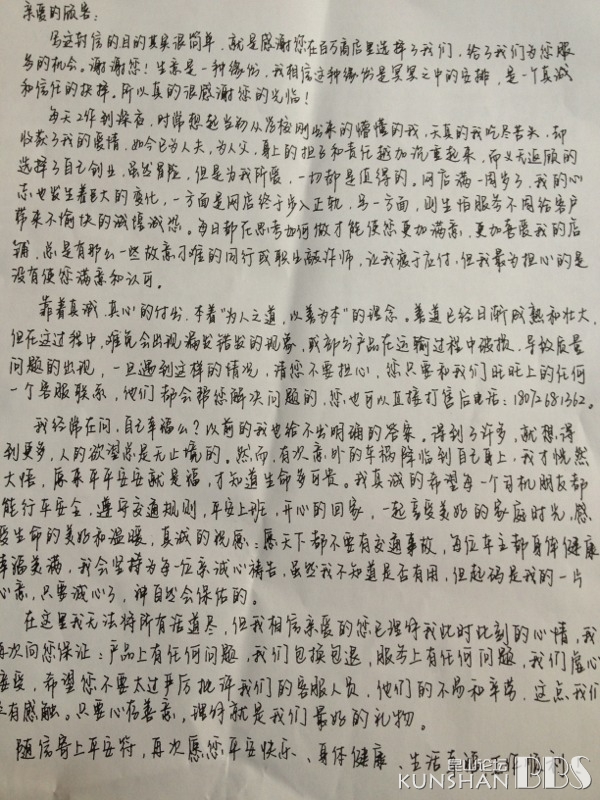 亲爱的顾客:
写这封信的目的其实很简单,就是感谢您在百万商店里选择了我们,给了我们为您服
务的机会。谢谢您!生意是一种缘份,我相信这种缘份是冥冥之中的安排,是一个真诚
和信任的抉择。所以真的很感谢您的光临!
每天工作到深夜,时常想起当初从学校刚出来的懵懂的我,天真的我吃尽苦头,却
收获了我的爱情,如今已为人夫,为人父,身上的担子和责任越加沉重起来,而义无返顾的
选择了自己创业,虽然冒险,但是为我所爱,一切都是值得的。网店满一周岁了,我的心
态也发生着巨大的变化,一方面是网店终于步入正轨,另一方面,则生怕服务不周给客户
带来不愉快的诚惶诚恐。每日都在思考如何做才能使您更加满意,更加喜爱我的店
铺,总是有那么一些故意刁难的同行或职业敲诈师,让我疲于应付,但我最为担心的是
没有使您满意和认可。
靠着真诚,真心的付出,本着"为人之道,以善为本"的理念。善道已经日渐成熟和壮大,
但在这过程中,难免会出现漏发错发的现象,或部分产品在运输过程中破损,导致质量
问题的出现,一旦遇到这样的情况,请您不要担心,您只要和我们旺旺上的任何
一个客服联系,他们都会帮您解决问题的,您也可以直接打售后电话:18072681362。
我经常在问,自己幸福么?以前的我也给不出明确的答案。得到了许多,就想得
到更多,人的欲望总是无止境的。然而,有次意外的车祸降临到自己身上,我才恍然
大悟,原来平平安安就是福,才知道生命多可贵。我真诚的希望每一个司机朋友都
能行平安全,遵守交通规则,平安上班,开心的回家,一起享受美好的家庭时光,感
受生命的美好和温暖,真诚的祝愿:愿天下都不要有交通事故,每位车主都身体健康
幸福美满,我会坚持为每一位亲诚心祷告,虽然我不知道是否有用,但起码是我的一片
心意,只要诚心了,神自然会保佑的。
在这里我无法将所有话道尽,但我相信亲爱的您已理解我此时此刻的心情,我
再次向您保证:产品上有任何问题,我们包换包退,服务上有任何问题,我们虚心
接受,希望您不要太过严厉批评我们的客服人员,他们的不易和辛劳,这点我们
是有感触。只要心存善意,理解就是我们最好的礼物。
随信寄上平安符,再次愿您平安快乐、身体健康、生活幸福 工作顺利
昆山论坛
KUNSHAN BBS